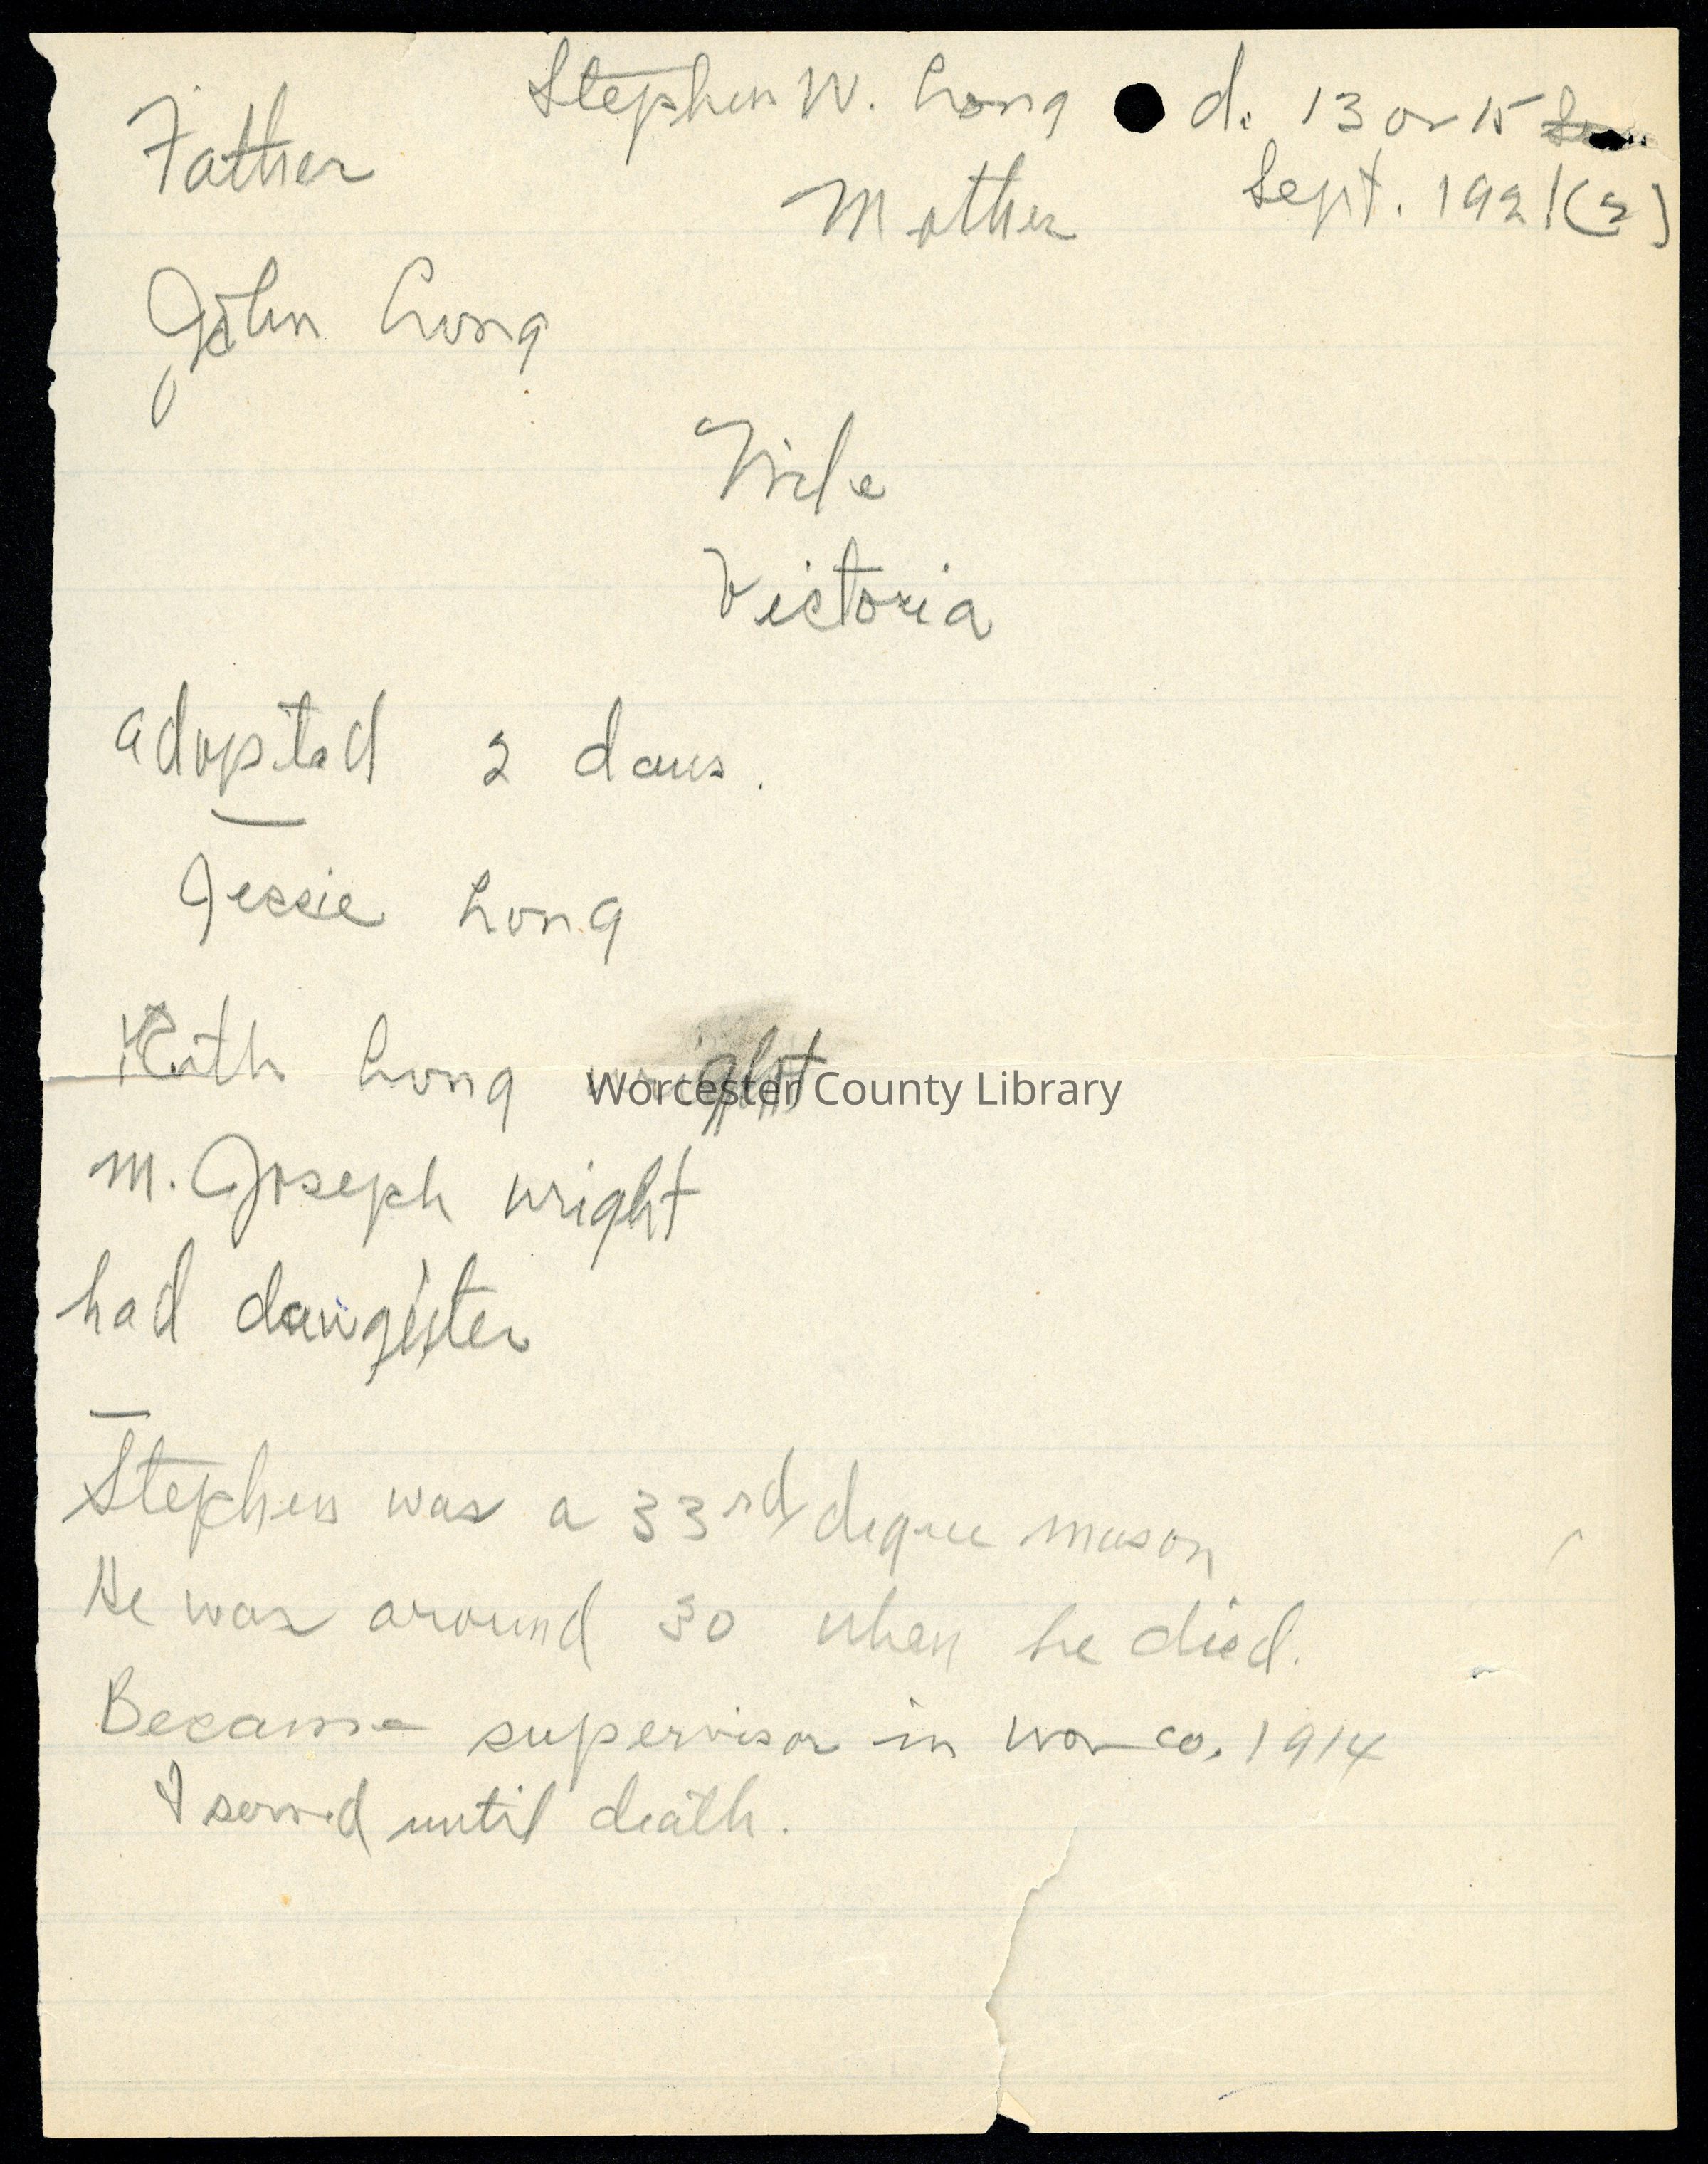 Stephen W. Long d. 13 or 15
Father Mother Sept. 1921(2)
John Long
Wife
Victoria
adopted 2 daus.
Jessie Long
Ruth Long wright
Worcester County Library
m. Joseph wright
had daughter
Stephen was a 33rd degree mason
He was around 50 when he died.
Became supervisor in Wor co. 1914
& served until death.